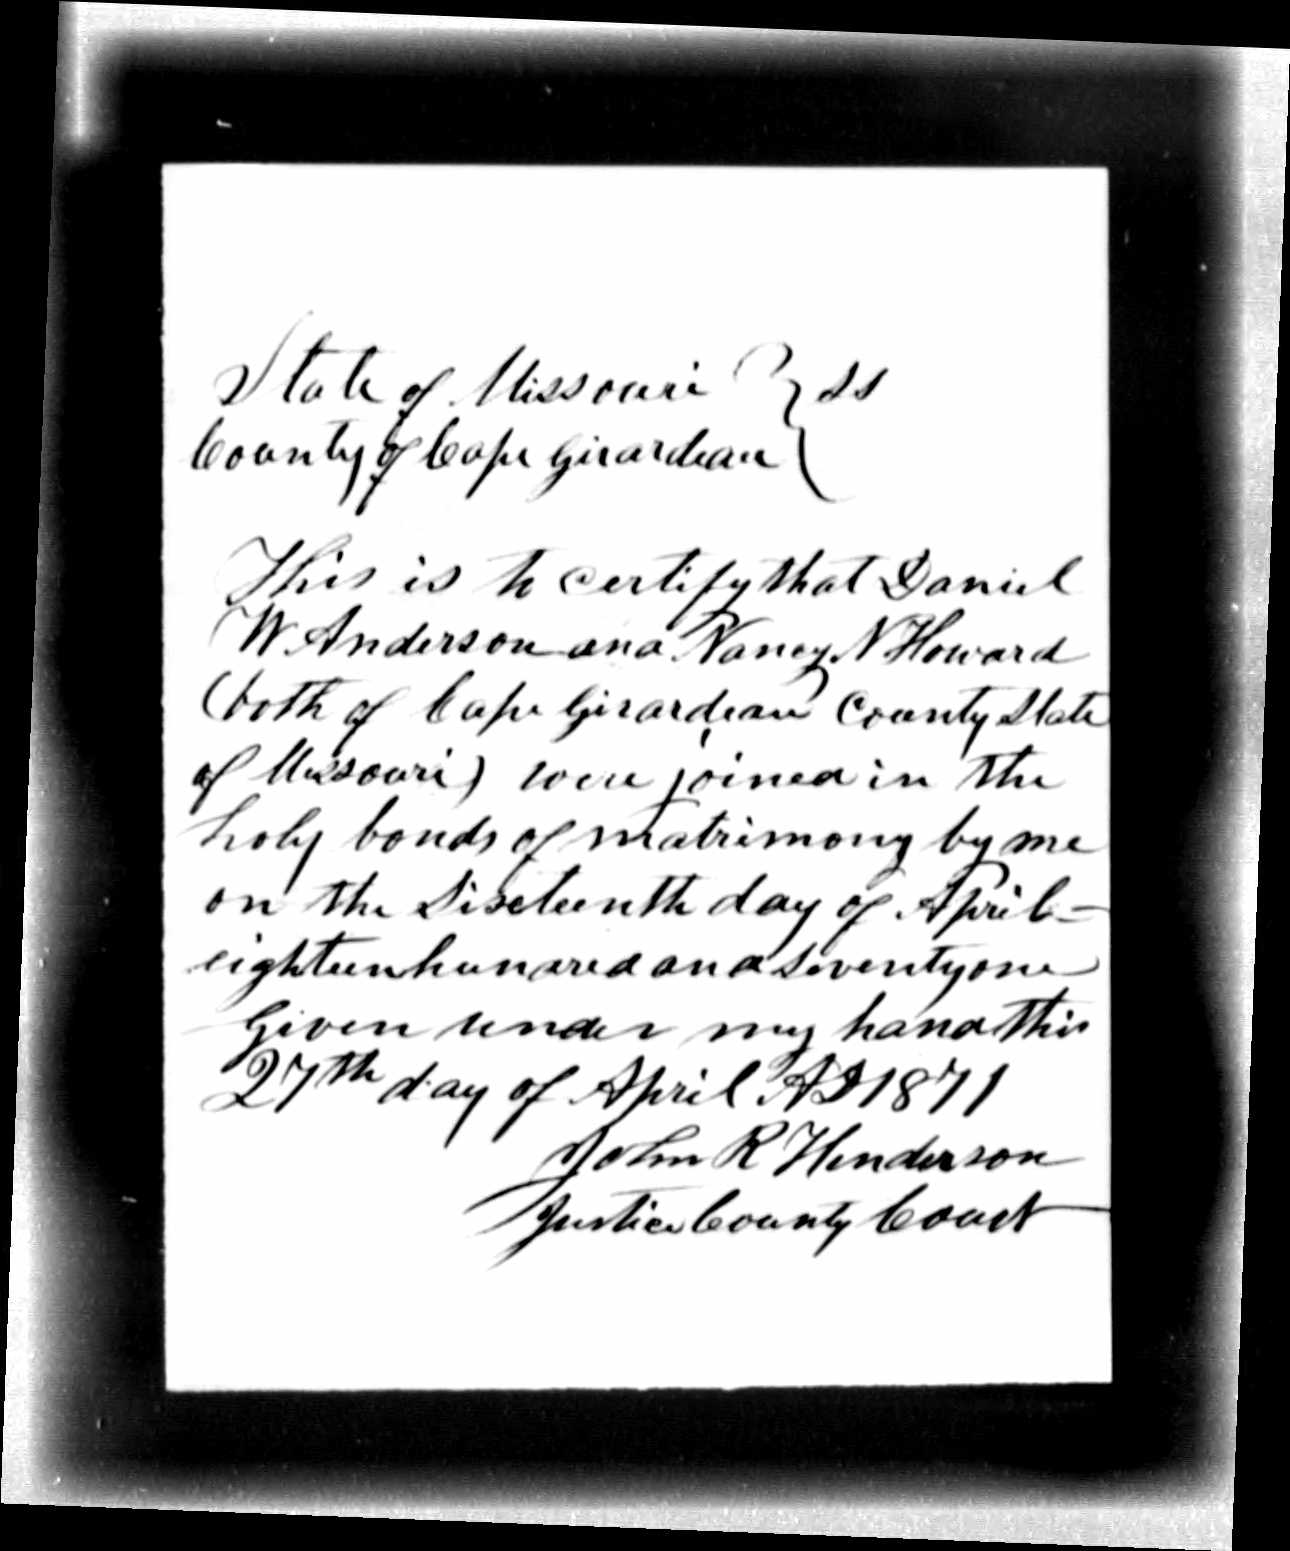 State of Missouri } SS
County of Cape Girardeau }
This is to certify that Daniel
W. Anderson and Nancy N Howard
(both of Cape Girardeau County State
of Missouri) were joined in the
holy bonds of matrimony by me
on the Sixteenth day of April –
eighteen hundred and Seventy one
Given under my hand this
27th day of April AD 1871
John R Henderson
Justice County Court